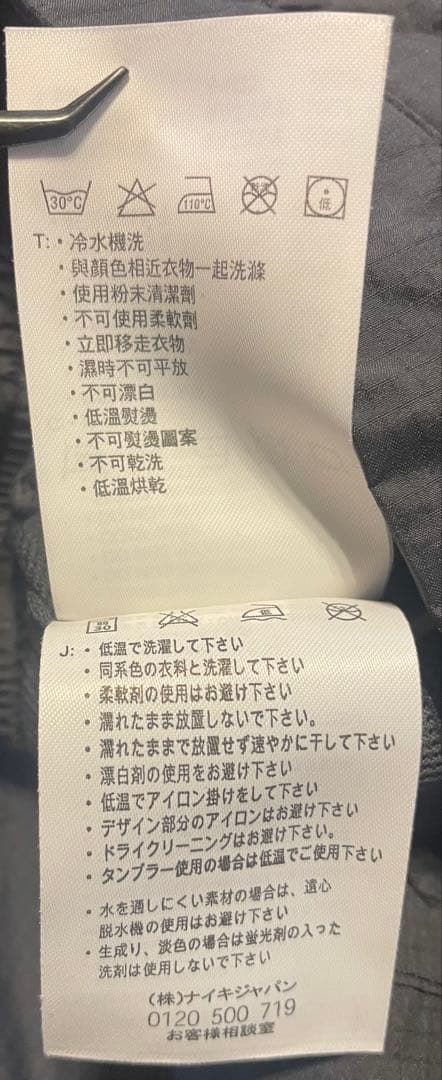 30°C 110°C 低
T:・冷水機洗
・與顏色相近衣物一起洗滌
・使用粉末清潔劑
・不可使用柔軟劑
・立即移走衣物
・濕時不可平放
・不可漂白
・低溫熨燙
・不可熨燙圖案
・不可乾洗
・低溫烘乾
30 低
J:・低温で洗濯して下さい
・同系色の衣料と洗濯して下さい
・柔軟剤の使用はお避け下さい
・濡れたまま放置しないで下さい。
・濡れたままで放置せず速やかに干して下さい
・漂白剤の使用をお避け下さい
・低温でアイロン掛けをして下さい
・デザイン部分のアイロンはお避け下さい
・ドライクリーニングはお避け下さい。
・タンブラー使用の場合は低温でご使用下さい
・水を通しにくい素材の場合は、遠心
脱水機の使用はお避け下さい
・生成り、淡色の場合は蛍光剤の入った
洗剤は使用しないで下さい
(株)ナイキジャパン
0120 500 719
お客様相談室